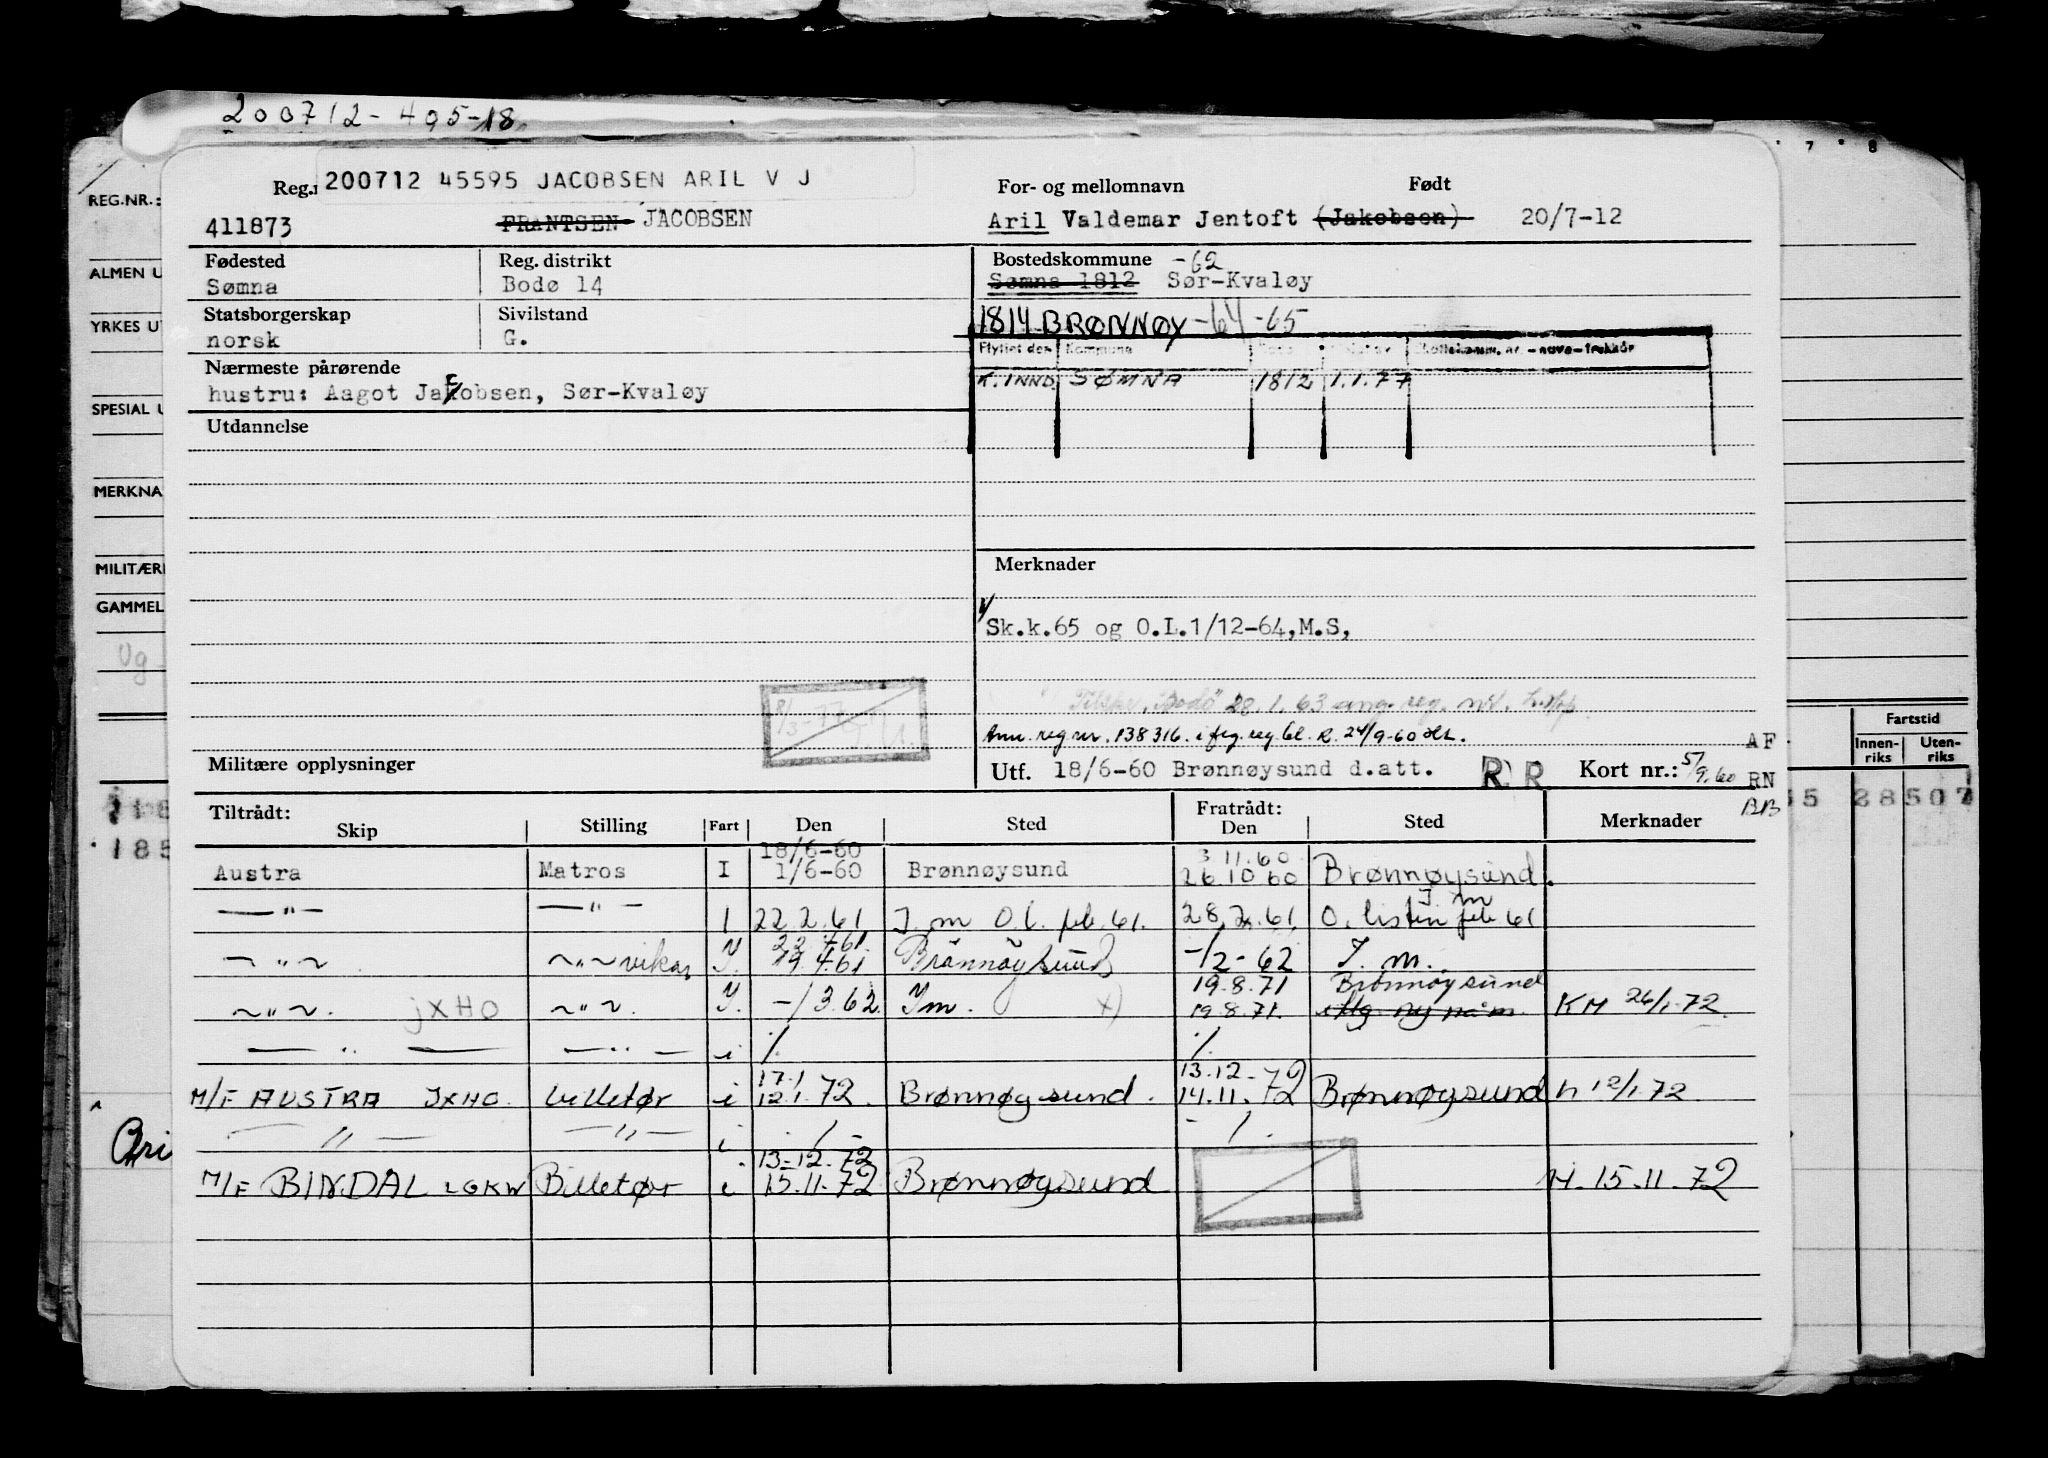 200712-405-18
7 8
REG.NR.:
Reg.n 200712 45595 JACOBSEN ARIL V J
For- og mellomnavn Født
411873 FRANTSEN JACOBSEN Aril Valdemar Jentoft (Jakobsen) 20/7-12
ALMEN U
Fødested Reg. distrikt Bostedskommune -62
Sømna Bodø 14 Sømna 1812 Sør-Kvaløy
YRKES UT
Statsborgerskap Sivilstand 1814 BRØNNØY -64-65
norsk G.
Flyttet den Kommune Skattekomm. nr. - navn - trekkår
Nærmeste pårørende
K. INND. SØMNA 1812 1.1.77
hustru: Aagot Jakobsen, Sør-Kvaløy
SPESIAL U
Utdannelse
MERKNA
MILITÆRE
Merknader
GAMMEL
Sk.k.65 og O.L.1/12-64,M.S,
Bodø 28.1.63 ang. reg. nr.
Ann. reg nr. 138316. i flg. reg bl. R. 24/9-60
Militære opplysninger
Utf. 18/6-60 Brønnøysund d.att. R R Kort nr.: 5/9.60
AF
RN
BB
Fartstid
Innen-riks Uten-riks
28507
185
Tiltrådt: Fratrådt:
Skip Stilling Fart Den Sted Den Sted Merknader
18/6-60 3 11.60
Austra Matros I 1/6-60 Brønnøysund 26.10 60 Brønnøysund.
—"— —"— I 22.2.61 I. m O.l. feb. 61. 28.2.61 I. m O. listen feb 61
22.4.61
~"~ ~"~ vikar I. 19.4.61 Brønnøysund -/2-62 I. m.
19.8.71 Brønnøysund
~"~. JXHO ~"~. I. -/3.62. I m. x) 19.8.71. KM 26/1.72.
—"— —"— i % %
17.1 13.12.72
M/F AUSTRA JXHO billetør i 12.1.72. Brønnøysund. 14.11.72 Brønnøysund h 12/1.72.
—"— —"— i - / - - / .
13-12.72
M/F BINDAL LGKW Billetør i 15.11.72 Brønnøysund H. 15.11.72
Ari